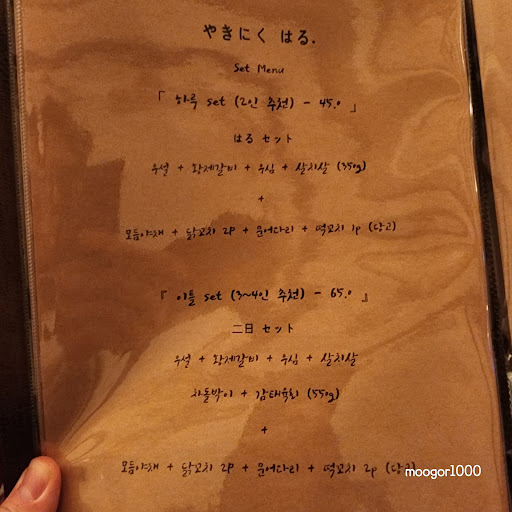 やきにく はる.
Set Menu
「 하루 set (2인 추천) - 45.0 」
はる セット
우설 + 황제갈비 + 우심 + 살치살 (350g)
+
모듬야채 + 닭꼬치 2P + 문어다리 + 떡꼬치 1P (당고)
『 이틀 set (3~4인 추천) - 65.0 』
二日 セット
우설 + 황제갈비 + 우심 + 살치살
차돌박이 + 감태육회 (550g)
+
모듬야채 + 닭꼬치 2P + 문어다리 + 떡꼬치 2P (당고
moogor1000